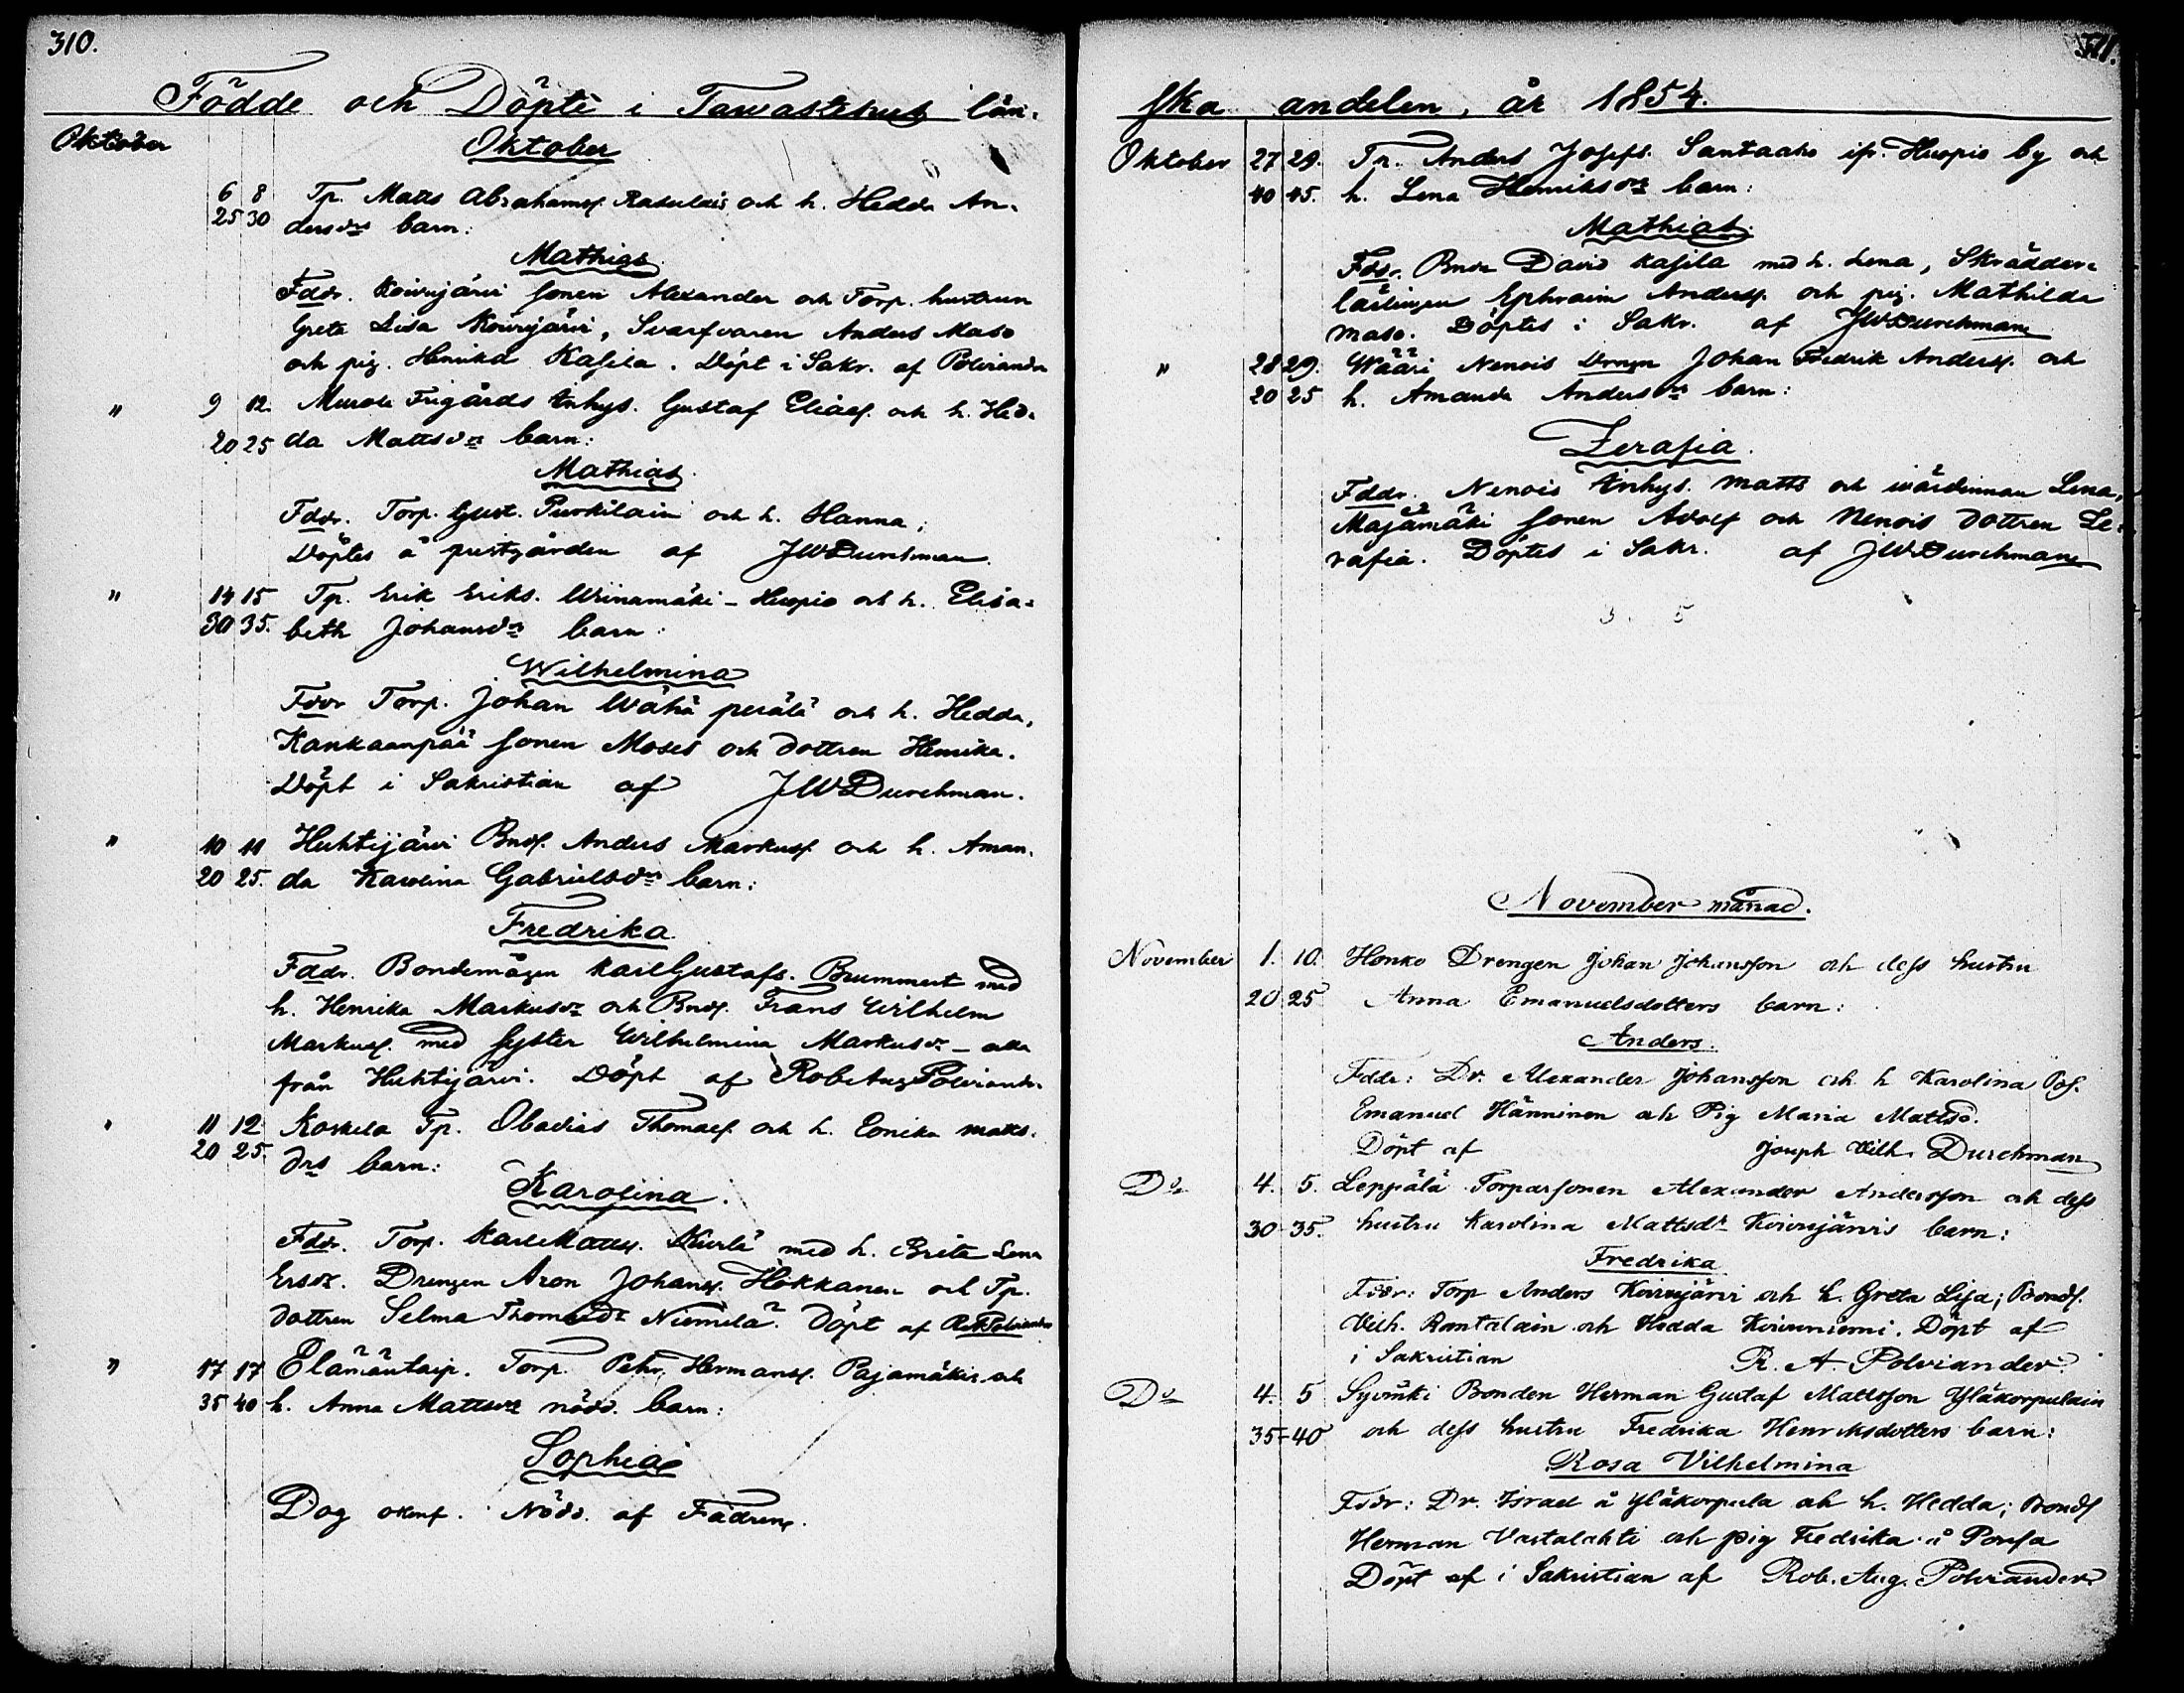 310.
Födde och Döpte i Tawastehus län-
Oktober
Oktober
6 8 Tp. Matts Abrahamss. Rasulais och h. Hedda An-
25 30 dersdrs barn:
Mathias.
Fddr. Koivujärvi sonen Alexander och Torp. hustrun
Greta Lisa Koivujärvi, Svarfvaren Anders Maso
och pig. Henrika Kasila. Döpt i Sakr. af Polviander
" 9 12. Murole Frigårds Inhys. Gustaf Eliass. och h. Hed-
20 25 da Mattsdrs barn:
Mathias.
Fddr. Torp. Gust. Purkilain och h. Hanna;
Döptes å prestgården af JWDurchman.
" 14 15 Tp. Erik Eriks. Wiinamäki - Huopio och h. Elisa-
30 35. beth Johansdrs barn:
Wilhelmina
Fddr Torp. Johan Wähä perälä och h. Hedda,
Kankaanpää sonen Moses och dottren Henrika.
Döpt i Sakristian af JWDurchman.
" 10 11 Huhtijärvi Bnds. Anders Markuss. och h. Aman-
20 25. da Karolina Gabrielsdrs barn:
Fredrika
Fddr. Bondemågen Karl Gustafs. Brummert med
h. Henrika Markusdr och Bnds. Frans Wilhelm
Markuss. med syster Wilhelmina Markusdr - alla
från Huhtijärvi. Döpt af Rob Aug Polviander
" 11 12 Koskela Tp. Obadias Thomass. och h. Eonika Matts-
20 25. drs barn:
Karolina.
Fddr. Torp. Karl Mattss. Kurlä med h. Brita Lena
Ersdr. Drengen Aron Johanss. Hokkanen och Tp.
dottren Selma Thomasdr Niemelä. Döpt af RAPolviander
" 17 17 Elämäntaip. Torp. Petr. Hermanss. Pajamäkis och
35 40 h. Anna Mattsdrs nödd. barn:
Sophia
Dog okonf. Nödd. af Fadren.
311.
ska andelen, år 1854.
Oktober 27 29. Tr. Anders Josefs. Santaaho ifr. Huopio by och
40 45. h. Lena Henriksdrs barn:
Mathias.
Fddr. Bndn David Kasila med h. Lena, Skräddare
lärlingen Ephraim Anderss. och pig. Mathilda
Maso. Döptes i Sakr. af JWDurchman
" 28 29. Wääri Nenois Drngn Johan Fredrik Anderss. och
20 25 h. Amanda Andersdrs barn:
Serafia.
Fddr. Nenois Inhys. Matts och wärdinnan Lena,
Majamäki sonen Adolf och Nenois dottren Se-
rafia. Döptes i Sakr. af JWDurchman
November månad.
November 1. 10. Honko Drengen Johan Johansson och dess hustru
20 25 Anna Emanuelsdotters barn:
Anders.
Fddr: Dr. Alexander Johansson och h Karolina
Emanuel Hänninen och Pig Maria Mattsd.
Döpt af Joseph Vilh. Durchman
Do 4. 5. Leppälä Torparsonen Alexander Andersson och dess
30-35. hustru Karolina Mattsdr Koivujärvis barn:
Fredrika
Fddr: Torp Anders Koivujärvi och h. Greta Lisa; Bonds.
Vilh. Rantalain och Hedda Koivuniemi. Döpt af
i Sakristian R. A. Polviander
Do 4. 5 Syvinki Bonden Herman Gustaf Mattsson Yläkorpulain
35-40 och dess hustru Fredrika Henriksdotters barn:
Rosa Vilhelmina
Fddr: Dr. Israel å Yläkorpula och h. Hedda; Bonds
Herman Vastalahti och pig Fredrika å Porsa
Döpt af i Sakristian af Rob. Aug. Polviander